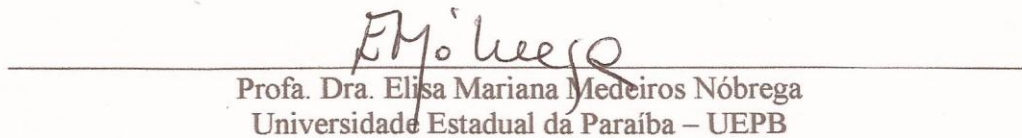 Profa. Dra. Elisa Mariana Medeiros Nóbrega
Universidade Estadual da Paraíba – UEPB